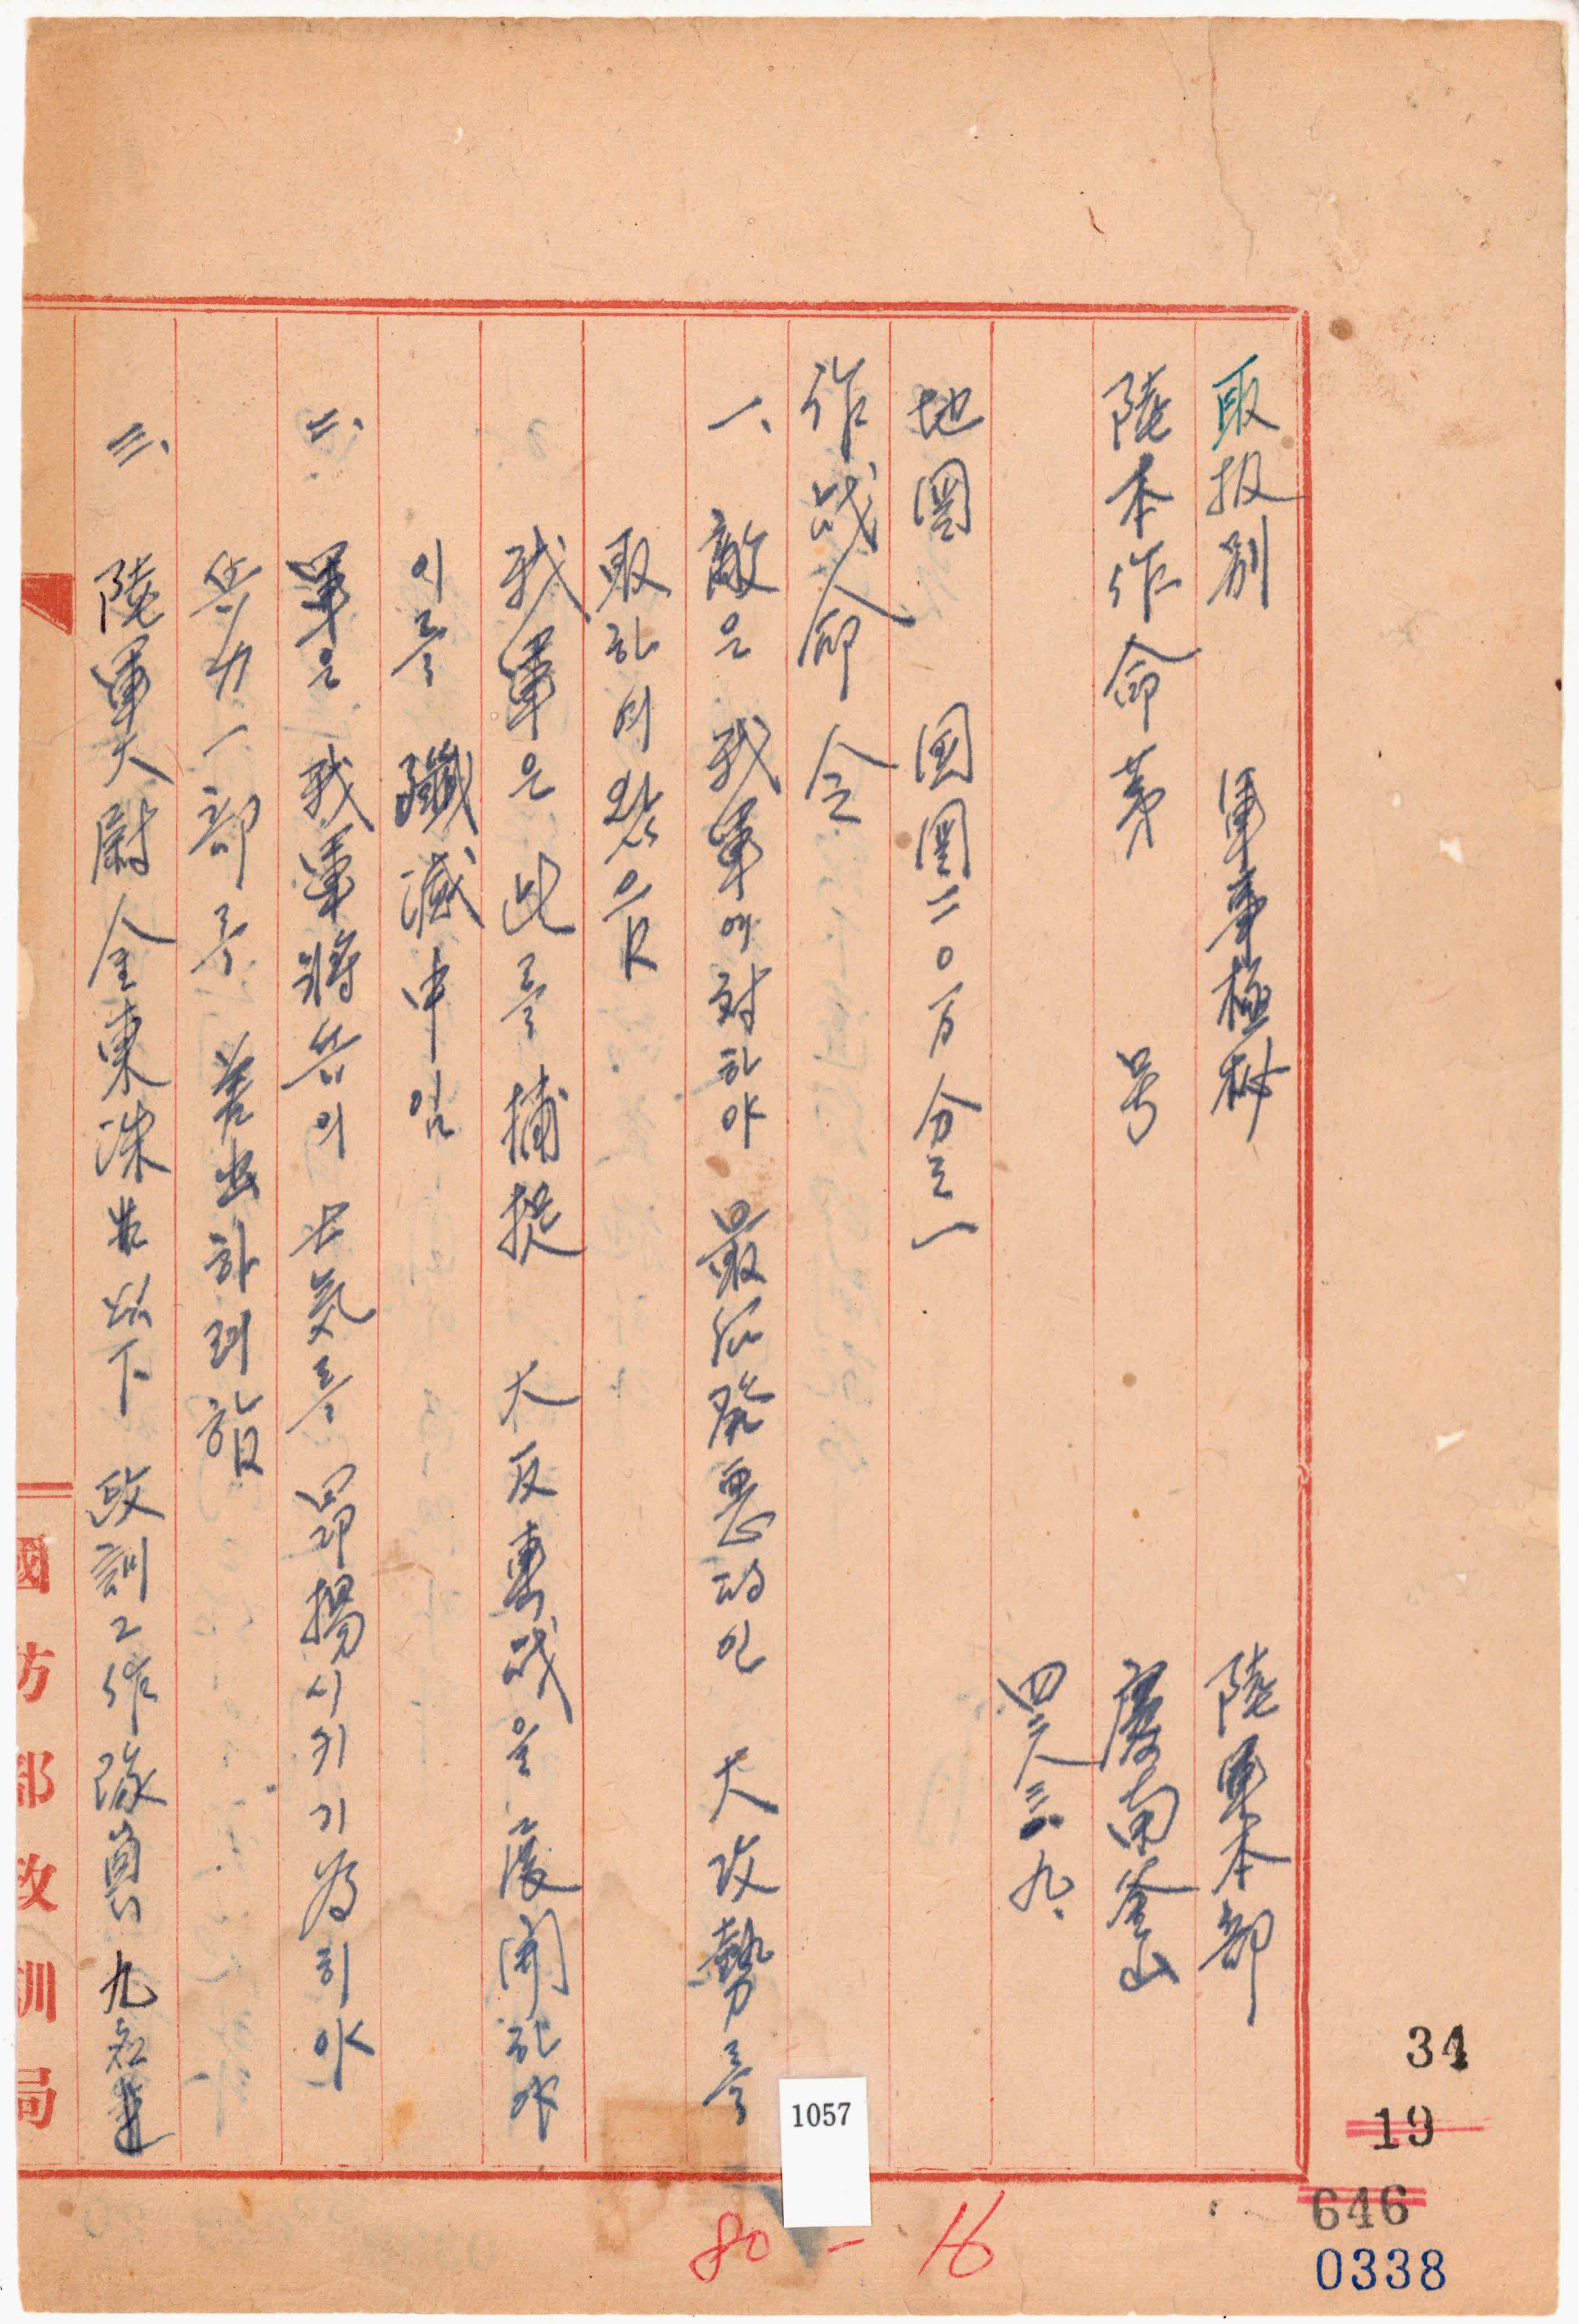 取扱別 軍事極秘 陸軍本部
陸本作命 第 号 慶南釜山
四二八三、九、
地圖 國圖二〇万分之一
作战命令
一、敵은 我軍에 対하야 最后発悪的인 大攻勢를
取하여 왔으나
我軍은 此를 捕捉 大反轟战을 展開하야
이를 殲滅中임
二、軍은 我軍将兵의 士気를 昻揚시키기 為하야
兵力一部를 差出하려함
三、陸軍大尉 金東洙 以下 政訓工作隊員 九名은
國防部政訓局
34
19
646
0338
1057
80 - 16